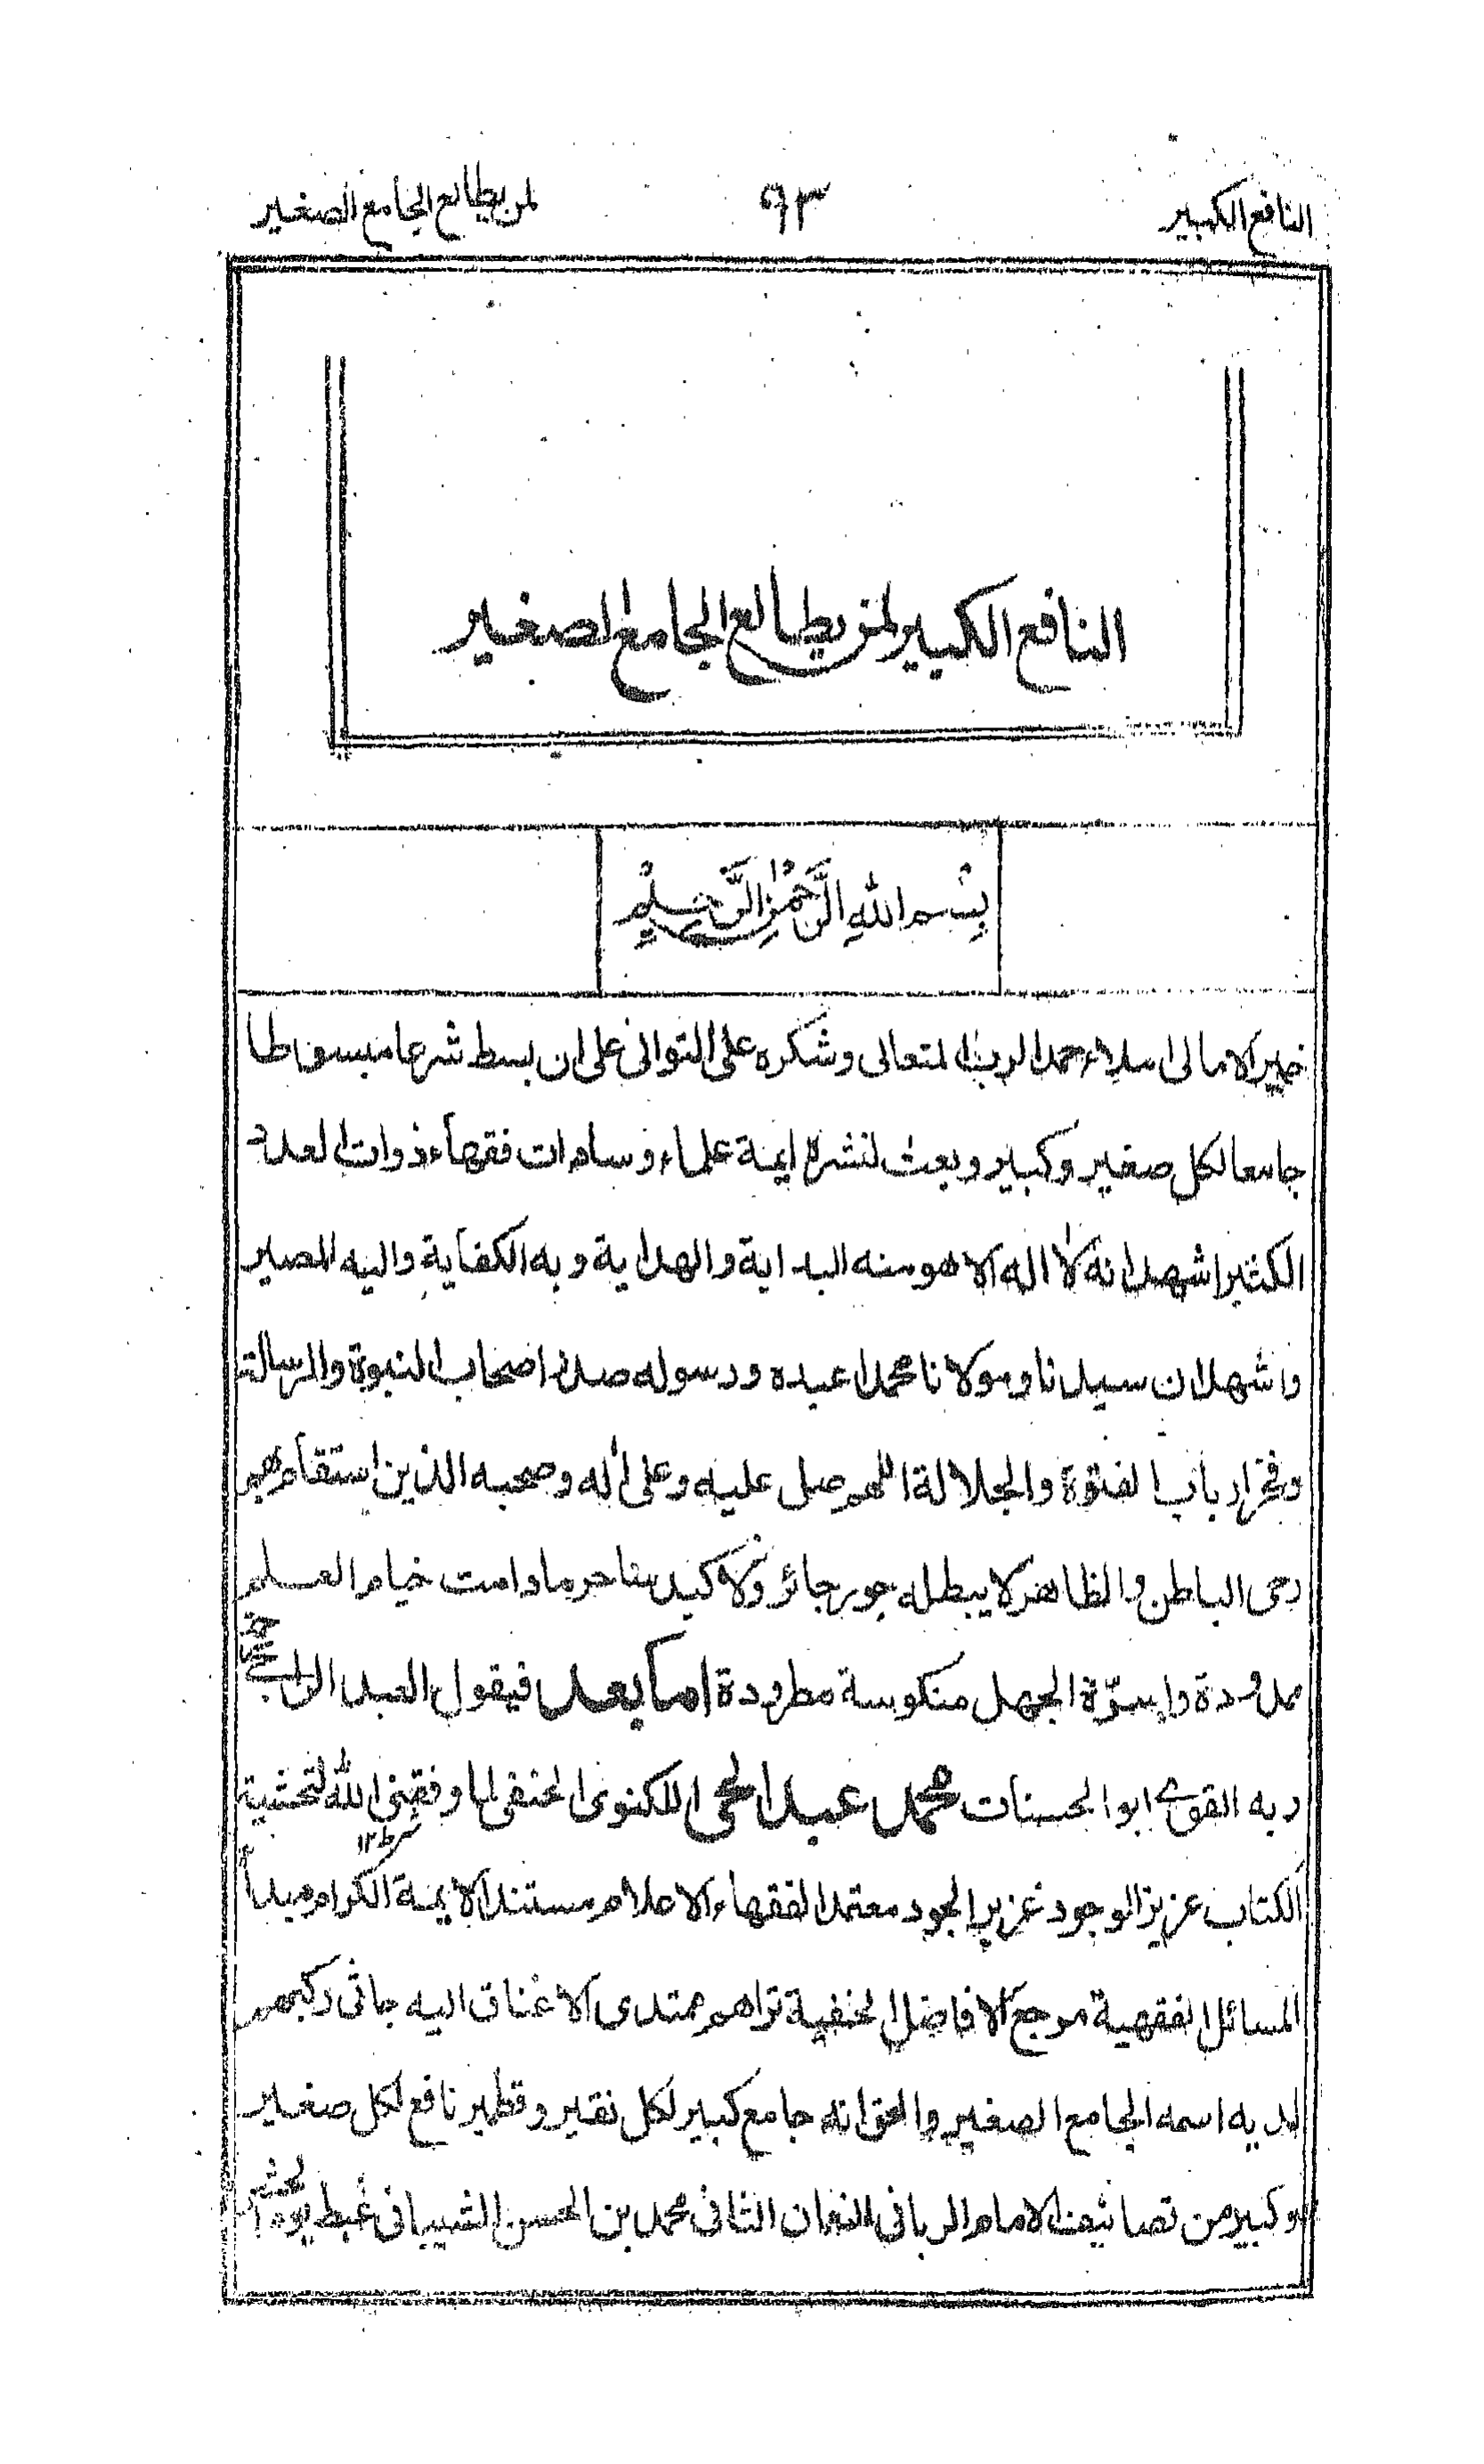 النافع الكبير ٩٣ لمن يطالع الجامع الصغير
النافع الكبير لمن يطالع الجامع الصغير
بِسْمِ اللهِ الرَّحْمٰنِ الرَّحِيْمِ
خير الامالى املاء حمد الرب المتعالى وشكره على التوالى على ان بسط شرعا مبسوطا
جامعا لكل صغير وكبير وبعث لنشره ايمة علماء وسادات فقهاء ذوات العدد
الكثير اشهد انه لا اله الا هو منه البداية والهداية وبه الكفاية واليه المصير
واشهد ان سيدنا ومولانا محمدا عبده ورسوله صدر اصحاب النبوة والرسالة
وفخر ارباب الفتوة والجلالة اللهم صل عليه وعلى اله وصحبه الذين استقام بهم
رحى الباطن والظاهر لا يبطله جور جائر ولا كيد ماحر مادامت خيام العلم
ممدودة واسرّة الجهل منكوسة مطرودة اما بعد فيقول العبد الراجى عفو
ربه القوى ابو الحسنات محمد عبد الحى اللكنوى الحنفى لما وفقنى الله لتحشية
الكتاب عزيز الوجود غزير الجود معتمد الفقهاء الاعلام مستند الايمة الكرام مبدأ
المسائل الفقهية مرجع الافاضل الحنفية تراهم ممتدى الاعناق اليه جاثى ركبهم
لديه اسمه الجامع الصغير والحق انه جامع كبير لكل نقير وقطمير نافع لكل صغير
وكبير من تصانيف الامام الربانى النعمان الثانى محمد بن الحسن الشيبانى غبط